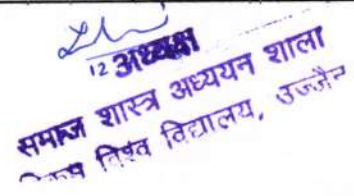 12 अध्यक्ष
समाज शास्त्र अध्ययन शाला
विक्रम विश्व विद्यालय, उज्जैन